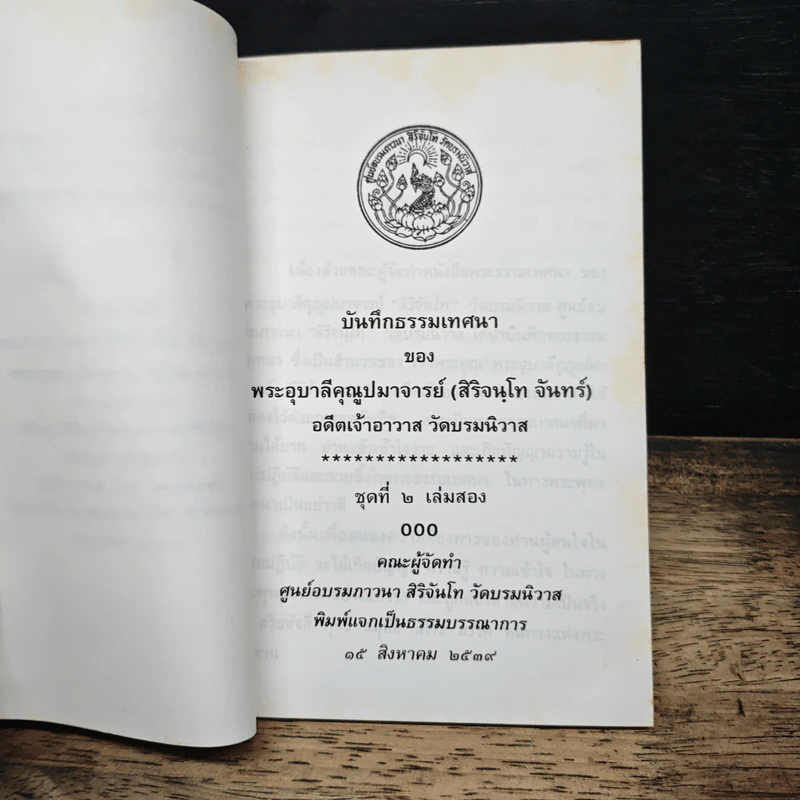 ศูนย์อบรมภาวนา สิริจันโท วัดบรมนิวาส
บันทึกธรรมเทศนา
ของ
พระอุบาลีคุณูปมาจารย์ (สิริจนฺโท จันทร์)
อดีตเจ้าอาวาส วัดบรมนิวาส
******************
ชุดที่ ๒ เล่มสอง
000
คณะผู้จัดทำ
ศูนย์อบรมภาวนา สิริจันโท วัดบรมนิวาส
พิมพ์แจกเป็นธรรมบรรณาการ
๑๕ สิงหาคม ๒๕๓๙